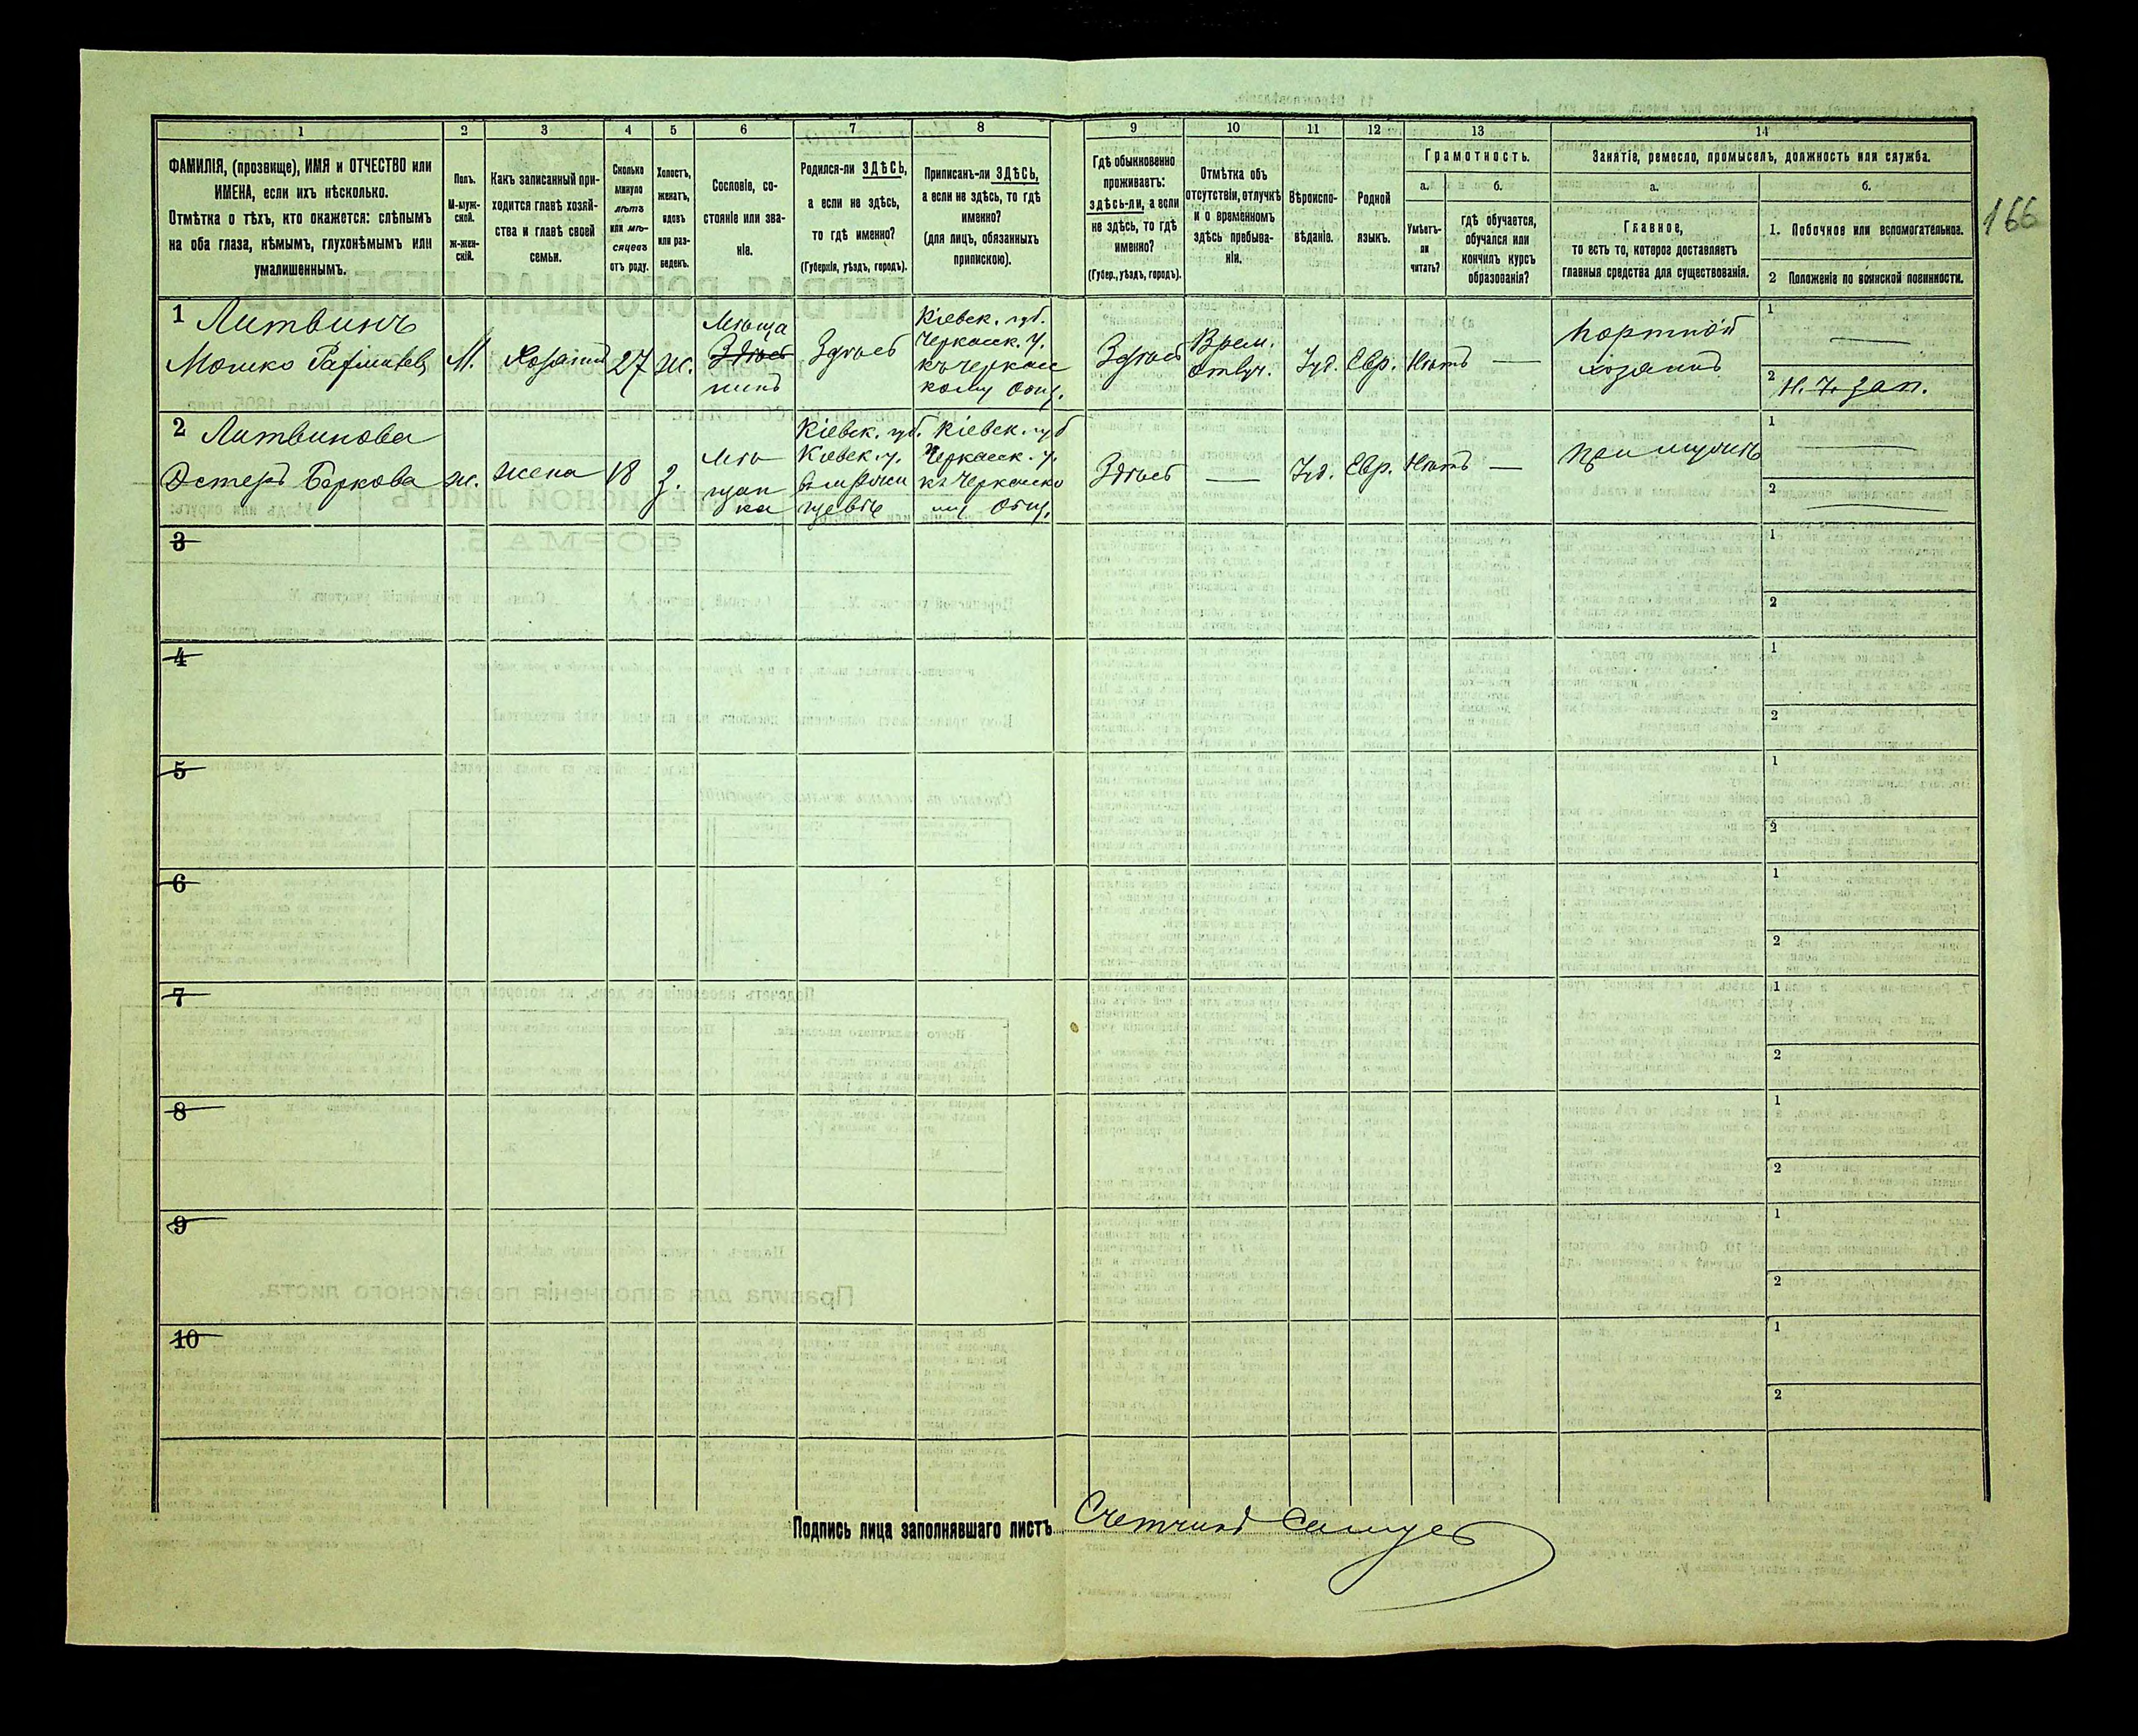 166
1
2
3
4
5
6
7
8
9
10
11
12
13
14
ФАМИЛІЯ, (прозвище), ИМЯ и ОТЧЕСТВО или
ИМЕНА, если ихъ нѣсколько.
Отмѣтка о тѣхъ, кто окажется: слѣпымъ
на оба глаза, нѣмымъ, глухонѣмымъ или
умалишеннымъ.
Полъ.
М-муж-
ской.
ж-жен-
скій.
Какъ записанный при-
ходится главѣ хозяй-
ства и главѣ своей
семьи.
Сколько
минуло
лѣтъ
или мѣ-
сяцевъ
отъ роду.
Холостъ,
женатъ,
вдовъ
или раз-
веденъ.
Сословіе, со-
стояніе или зва-
ніе.
Родился-ли ЗДѢСЬ,
а если не здѣсь,
то гдѣ именно?
(Губернія, уѣздъ, городъ).
Приписанъ-ли ЗДѢСЬ,
а если не здѣсь, то гдѣ
именно?
(для лицъ, обязанныхъ
припискою).
Гдѣ обыкновенно
проживаетъ:
здѣсь-ли, а если
не здѣсь, то гдѣ
именно?
(Губер., уѣздъ, городъ).
Отмѣтка объ
отсутствіи, отлучкѣ
и о временномъ
здѣсь пребыва-
ніи.
Вѣроиспо-
вѣданіе.
Родной
языкъ.
Грамотность.
а.
Умѣетъ-
ли
читать?
б.
гдѣ обучается,
обучался или
кончилъ курсъ
образованія?
Занятіе, ремесло, промыселъ, должность или служба.
а.
Главное,
то есть то, которое доставляетъ
главныя средства для существованія.
б.
1. Побочное или вспомогательное.
2 Положеніе по воинской повинности.
1 Литвинъ
Мошко
М.
Хозяинъ
27
ж.
Мѣща
Здѣсь
нинъ
Здѣсь
Кіевск. губ.
Черкасск. у.
къ Черкасс
кому Общ.
Здѣсь
Врем.
отлуч.
Іуд.
Евр.
Нѣтъ
—
Портной
хозяинъ
1
—
2
Н. 2 зап.
2 Литвинова
Эстеръ Беркова
ж.
жена
18
З.
Мѣ
щан
ка
Кіевск. губ.
Кіевск. у.
Кіевск. губ
Черкасск. у.
къ Черкасско
му Общ.
Здѣсь
—
Іуд.
Евр.
Нѣтъ
—
при мужѣ
1
—
2
—
3
1
2
4
1
2
5
1
2
6
1
2
7
1
2
8
1
2
9
1
2
10
1
2
Подпись лица заполнявшаго листъ Счетчикъ